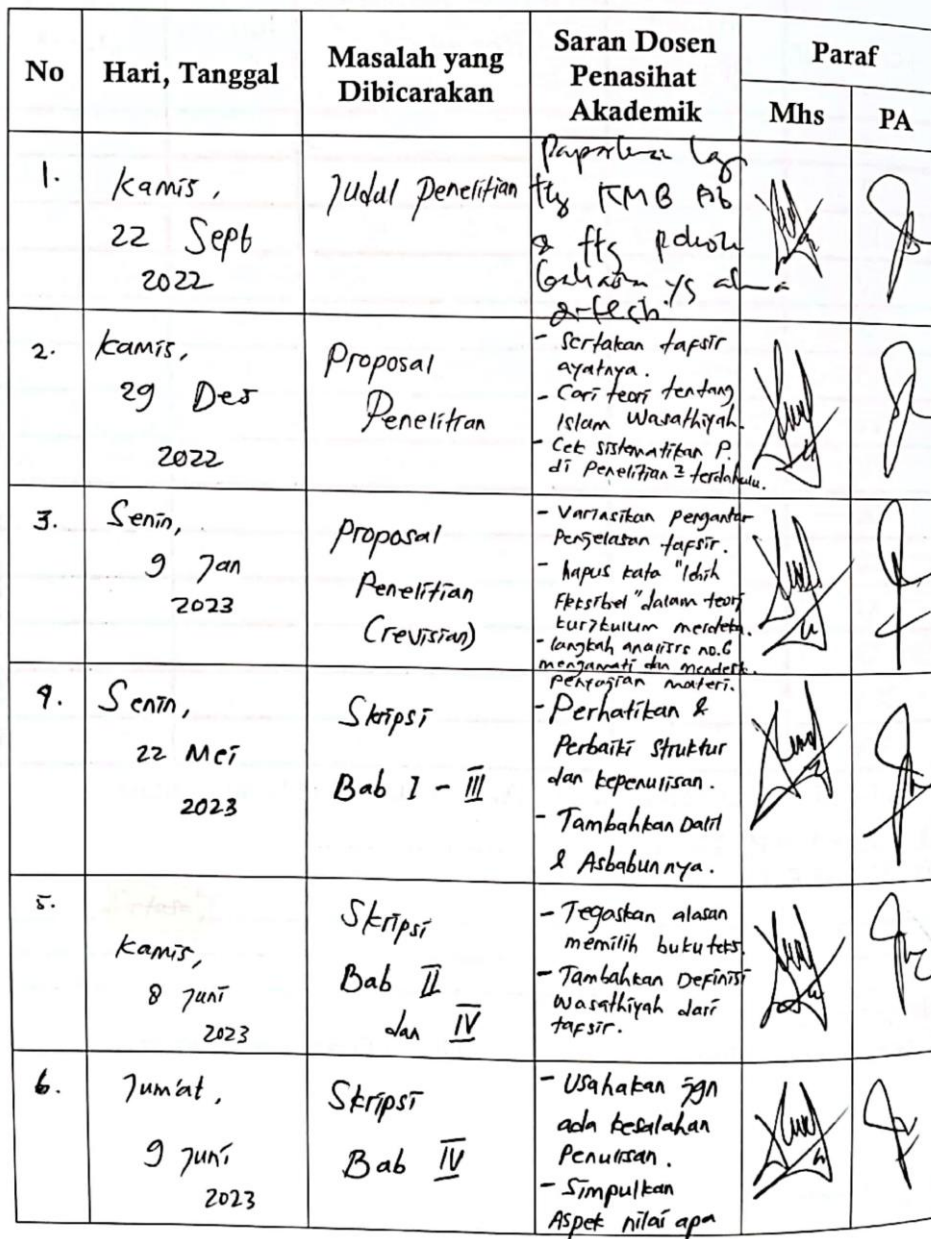 No
Hari, Tanggal
Masalah yang
Dibicarakan
Saran Dosen
Penasihat
Akademik
Paraf
Mhs
PA
1.
Kamis,
22 Sept
2022
Judul Penelitian
ttg KMB
& ttg
2.
Kamis,
29 Des
2022
Proposal
Penelitian
- Sertakan tafsir
ayatnya.
- Cari teori tentang
Islam Wasathiyah.
- Cek sistematikan P.
di Penelitian 2 terdahulu.
3.
Senin,
9 Jan
2023
Proposal
Penelitian
(revisian)
- Variasikan pengantar
Penjelasan tafsir.
- hapus kata "lebih
Fleksibel" dalam teori
kurikulum merdeka.
- langkah analisis no.6
mengamati dan mendesk.
penyajian materi.
4.
Senin,
22 Mei
2023
Skripsi
Bab I - III
- Perhatikan &
Perbaiki struktur
dan kepenulisan.
- Tambahkan Dalil
& Asbabunnya.
5.
Kamis,
8 Juni
2023
Skripsi
Bab II
dan IV
- Tegaskan alasan
memilih buku teks.
- Tambahkan Definisi
Wasathiyah dari
tafsir.
6.
Jum'at,
9 Juni
2023
Skripsi
Bab IV
- Usahakan jgn
ada kesalahan
Penulisan.
- Simpulkan
Aspek nilai apa